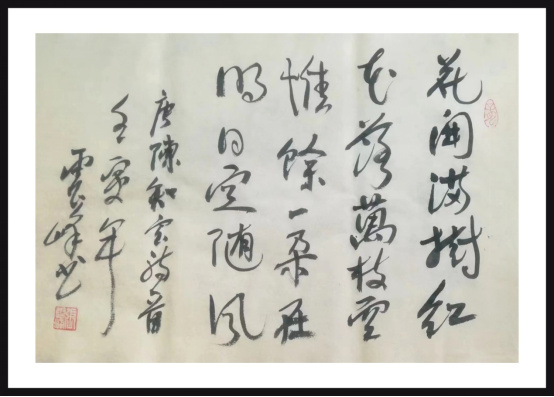 花開滿樹紅
花落萬枝空
惟餘一朵在
明日定随風
唐陳知玄詩首
壬寅年
雲峰书